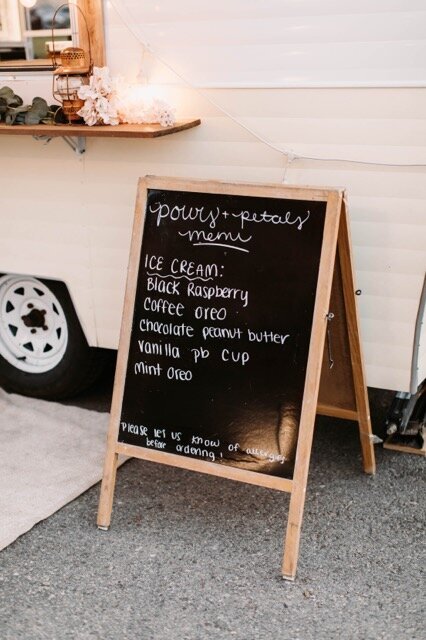 pours + petals
menu
ICE CREAM:
Black Raspberry
Coffee oreo
Chocolate peanut butter
Vanilla pb cup
Mint oreo
Please let us know of allergies
before ordering!